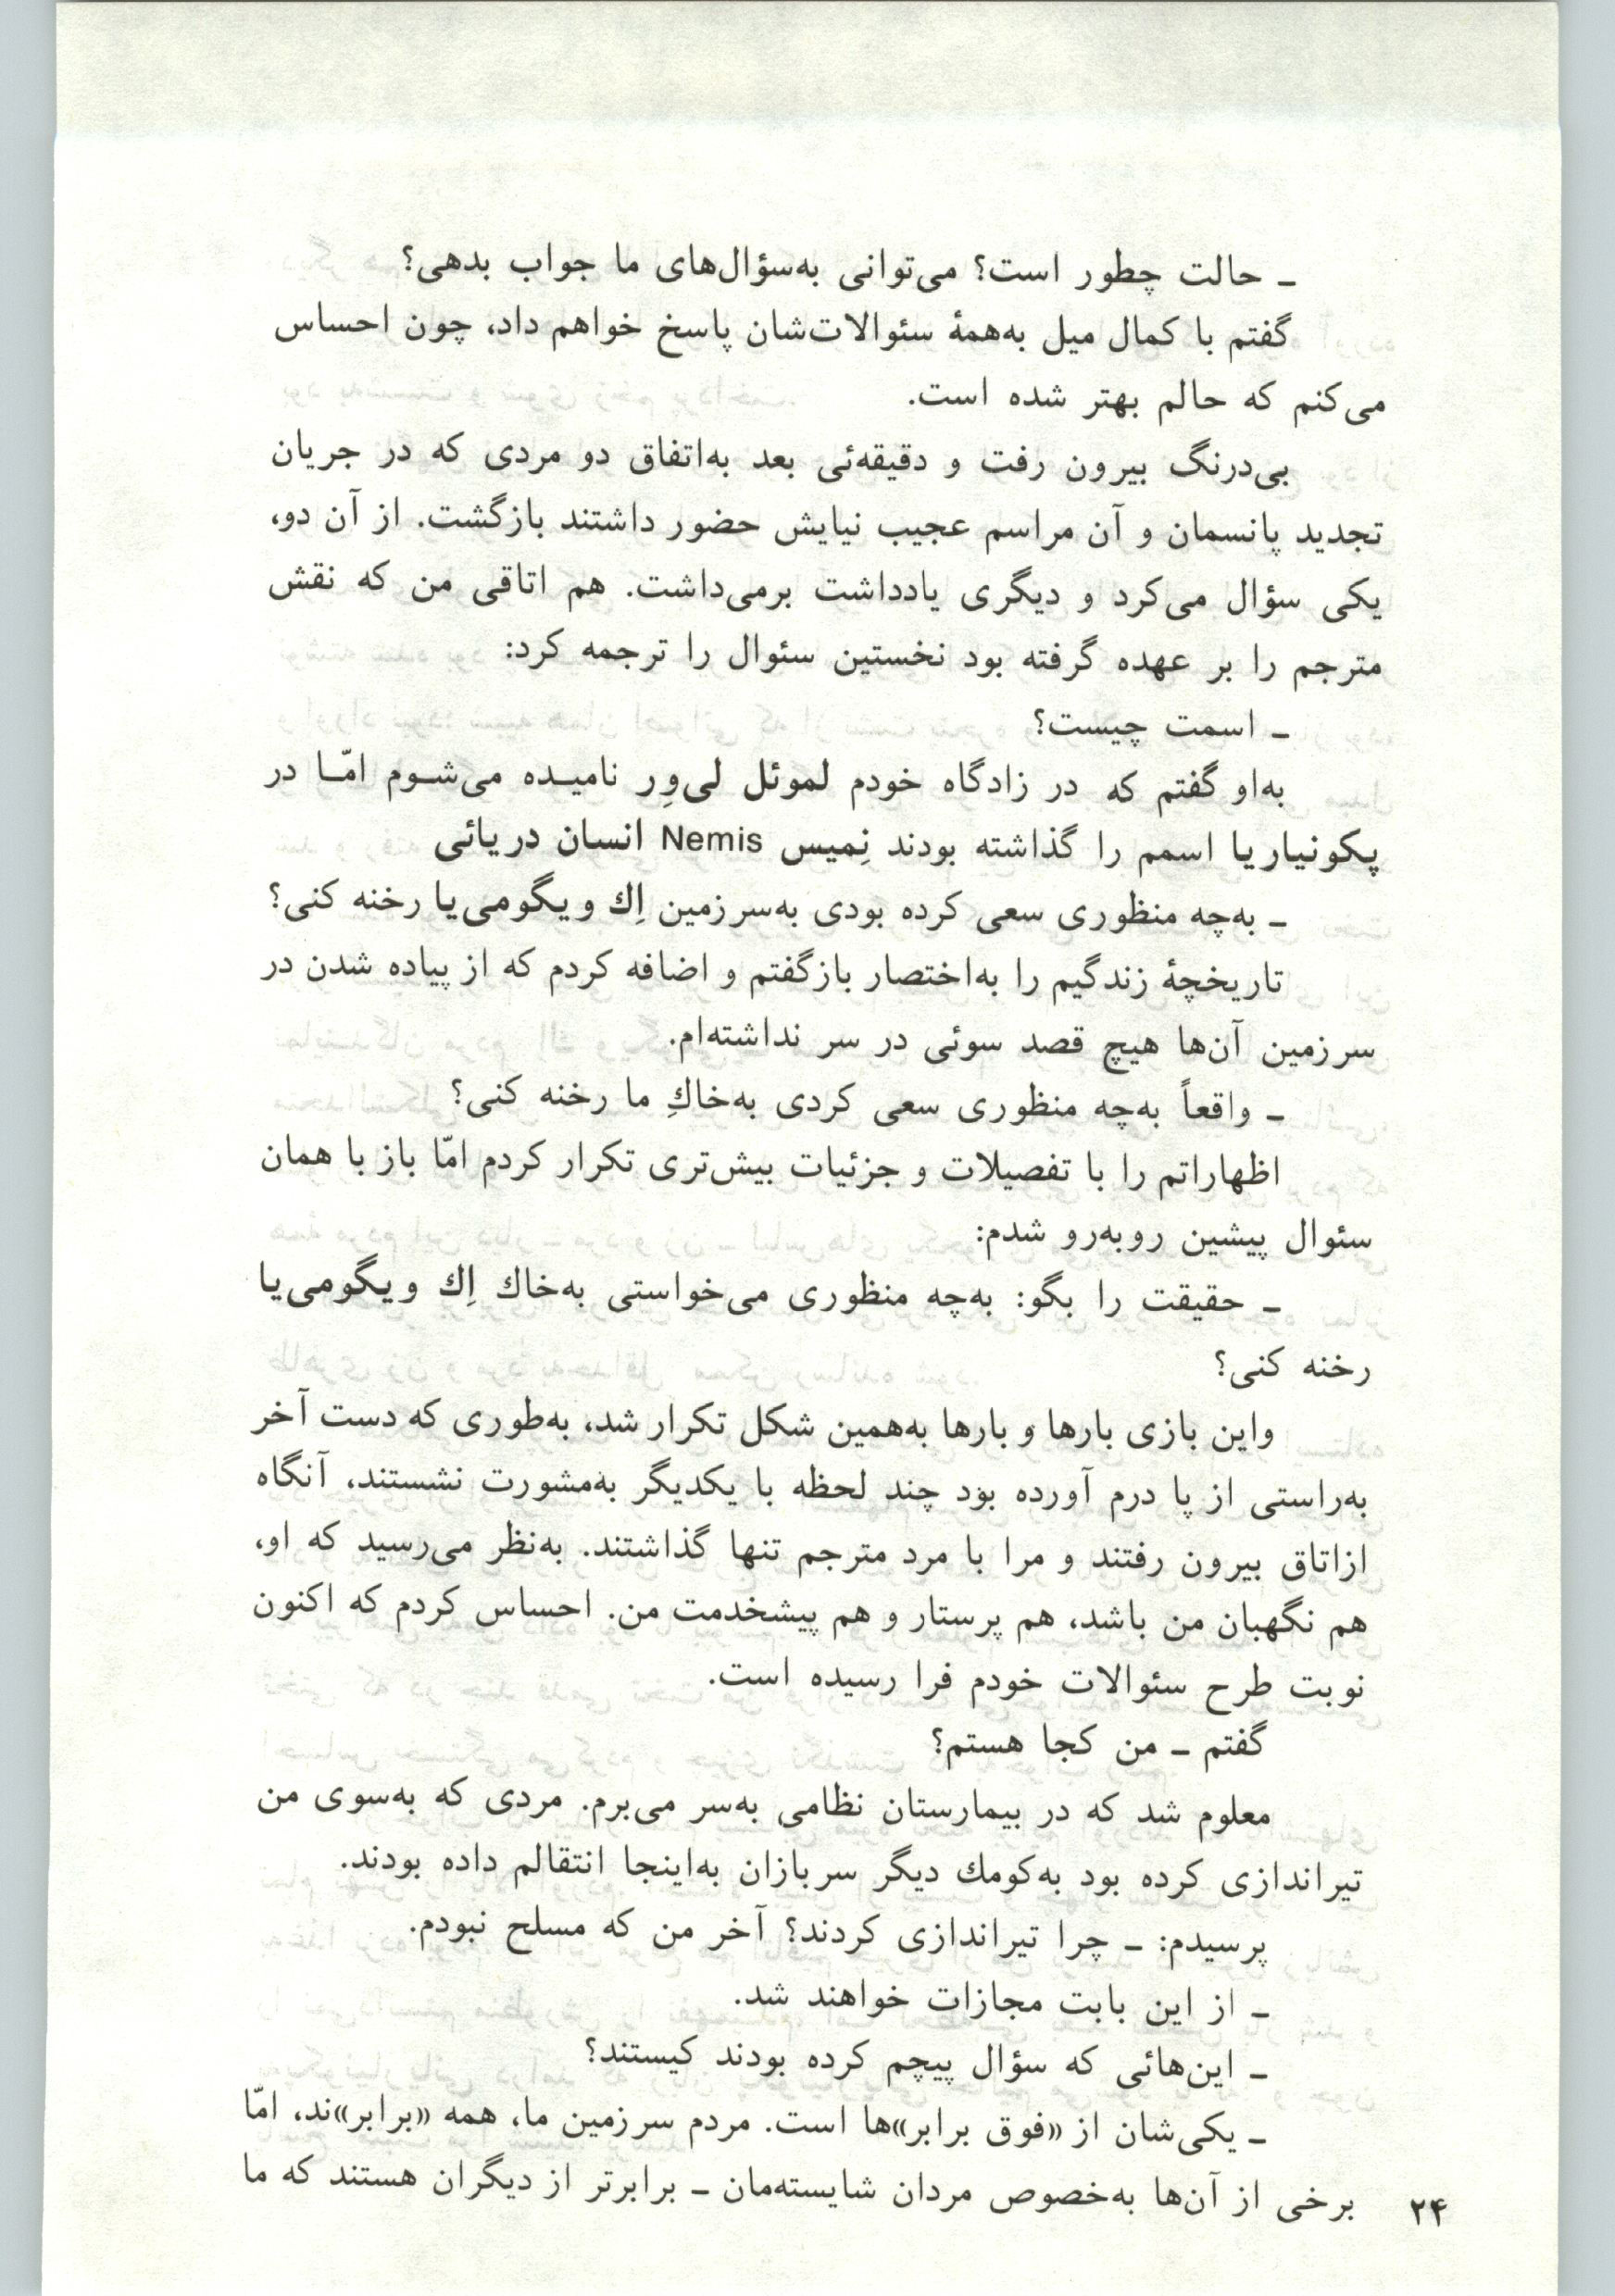 ـ حالت چطور است؟ می‌توانی به‌سؤال‌های ما جواب بدهی؟
گفتم با کمال میل به‌همهٔ سئوالات‌شان پاسخ خواهم داد، چون احساس
می‌کنم که حالم بهتر شده است.
بی‌درنگ بیرون رفت و دقیقه‌ئی بعد به‌اتفاق دو مردی که در جریان
تجدید پانسمان و آن مراسم عجیب نیایش حضور داشتند بازگشت. از آن دو،
یکی سؤال می‌کرد و دیگری یادداشت برمی‌داشت. هم اتاقی من که نقش
مترجم را بر عهده گرفته بود نخستین سئوال را ترجمه کرد:
ـ اسمت چیست؟
به‌او گفتم که در زادگاه خودم لموئل لی‌وِر نامیده می‌شوم امّا در
پکونیاریا اسمم را گذاشته بودند نِمیس Nemis انسان دریائی
ـ به‌چه منظوری سعی کرده بودی به‌سرزمین اِك ویگومی‌یا رخنه کنی؟
تاریخچهٔ زندگیم را به‌اختصار بازگفتم و اضافه کردم که از پیاده شدن در
سرزمین آن‌ها هیچ قصد سوئی در سر نداشته‌ام.
ـ واقعاً به‌چه منظوری سعی کردی به‌خاكِ ما رخنه کنی؟
اظهاراتم را با تفصیلات و جزئیات بیش‌تری تکرار کردم امّا باز با همان
سئوال پیشین روبه‌رو شدم:
ـ حقیقت را بگو: به‌چه منظوری می‌خواستی به‌خاك اِك ویگومی‌یا
رخنه کنی؟
واین بازی بارها و بارها به‌همین شکل تکرار شد، به‌طوری که دست آخر
به‌راستی از پا درم آورده بود چند لحظه با یکدیگر به‌مشورت نشستند، آنگاه
ازاتاق بیرون رفتند و مرا با مرد مترجم تنها گذاشتند. به‌نظر می‌رسید که او،
هم نگهبان من باشد، هم پرستار و هم پیشخدمت من. احساس کردم که اکنون
نوبت طرح سئوالات خودم فرا رسیده است.
گفتم ـ من کجا هستم؟
معلوم شد که در بیمارستان نظامی به‌سر می‌برم. مردی که به‌سوی من
تیراندازی کرده بود به‌کومك دیگر سربازان به‌اینجا انتقالم داده بودند.
پرسیدم: ـ چرا تیراندازی کردند؟ آخر من که مسلح نبودم.
ـ از این بابت مجازات خواهند شد.
ـ این‌هائی که سؤال پیچم کرده بودند کیستند؟
ـ یکی‌شان از «فوق برابر»ها است. مردم سرزمین ما، همه «برابر»ند، امّا
برخی از آن‌ها به‌خصوص مردان شایسته‌مان ـ برابرتر از دیگران هستند که ما
۲۴